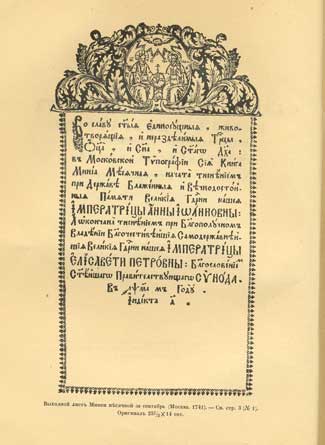 Во славу ст҃ыѧ Единосꙋщныѧ, живо-
творѧщіѧ, и нераздѣлимыѧ Трⷪ҇цы,
Ѻ҆ц҃а, и Сн҃а, и Ст҃агѡ Дх҃а:
въ Московской Тѷпографїи Сїѧ Книга
Минїа Мѣсѧчнаѧ, начата тиснѣнїемъ
при Державѣ Блаженныѧ и Вѣчнодостой-
ныѧ Памѧти Великїѧ Гдⷭ҇рни нашеѧ
ІМПЕРАТРІЦЫ АННЫ ІѠАННОВНЫ:
Ѧѡкончана тиснѣнїемъ при Благополꙋчномъ
Владѣнїи Благочестивѣйшїѧ Самодержавнѣй-
шїѧ Великїѧ Гдⷭ҇рни нашеѧ ІМПЕРАТРІЦЫ
ЕЛІСАВЕТИ ПЕТРОВНЫ: Благословенїемъ
Ст҃ѣйшагѡ Правительствꙋющагѡ СѴНОДА.
Въ ҂аѱма мъ Годꙋ
Індїкта
Выходной листъ Минеи мѣсячной за сентябрь (Москва. 1741). — См. стр. 3 (№ 1).
Оригиналъ 14 снт.